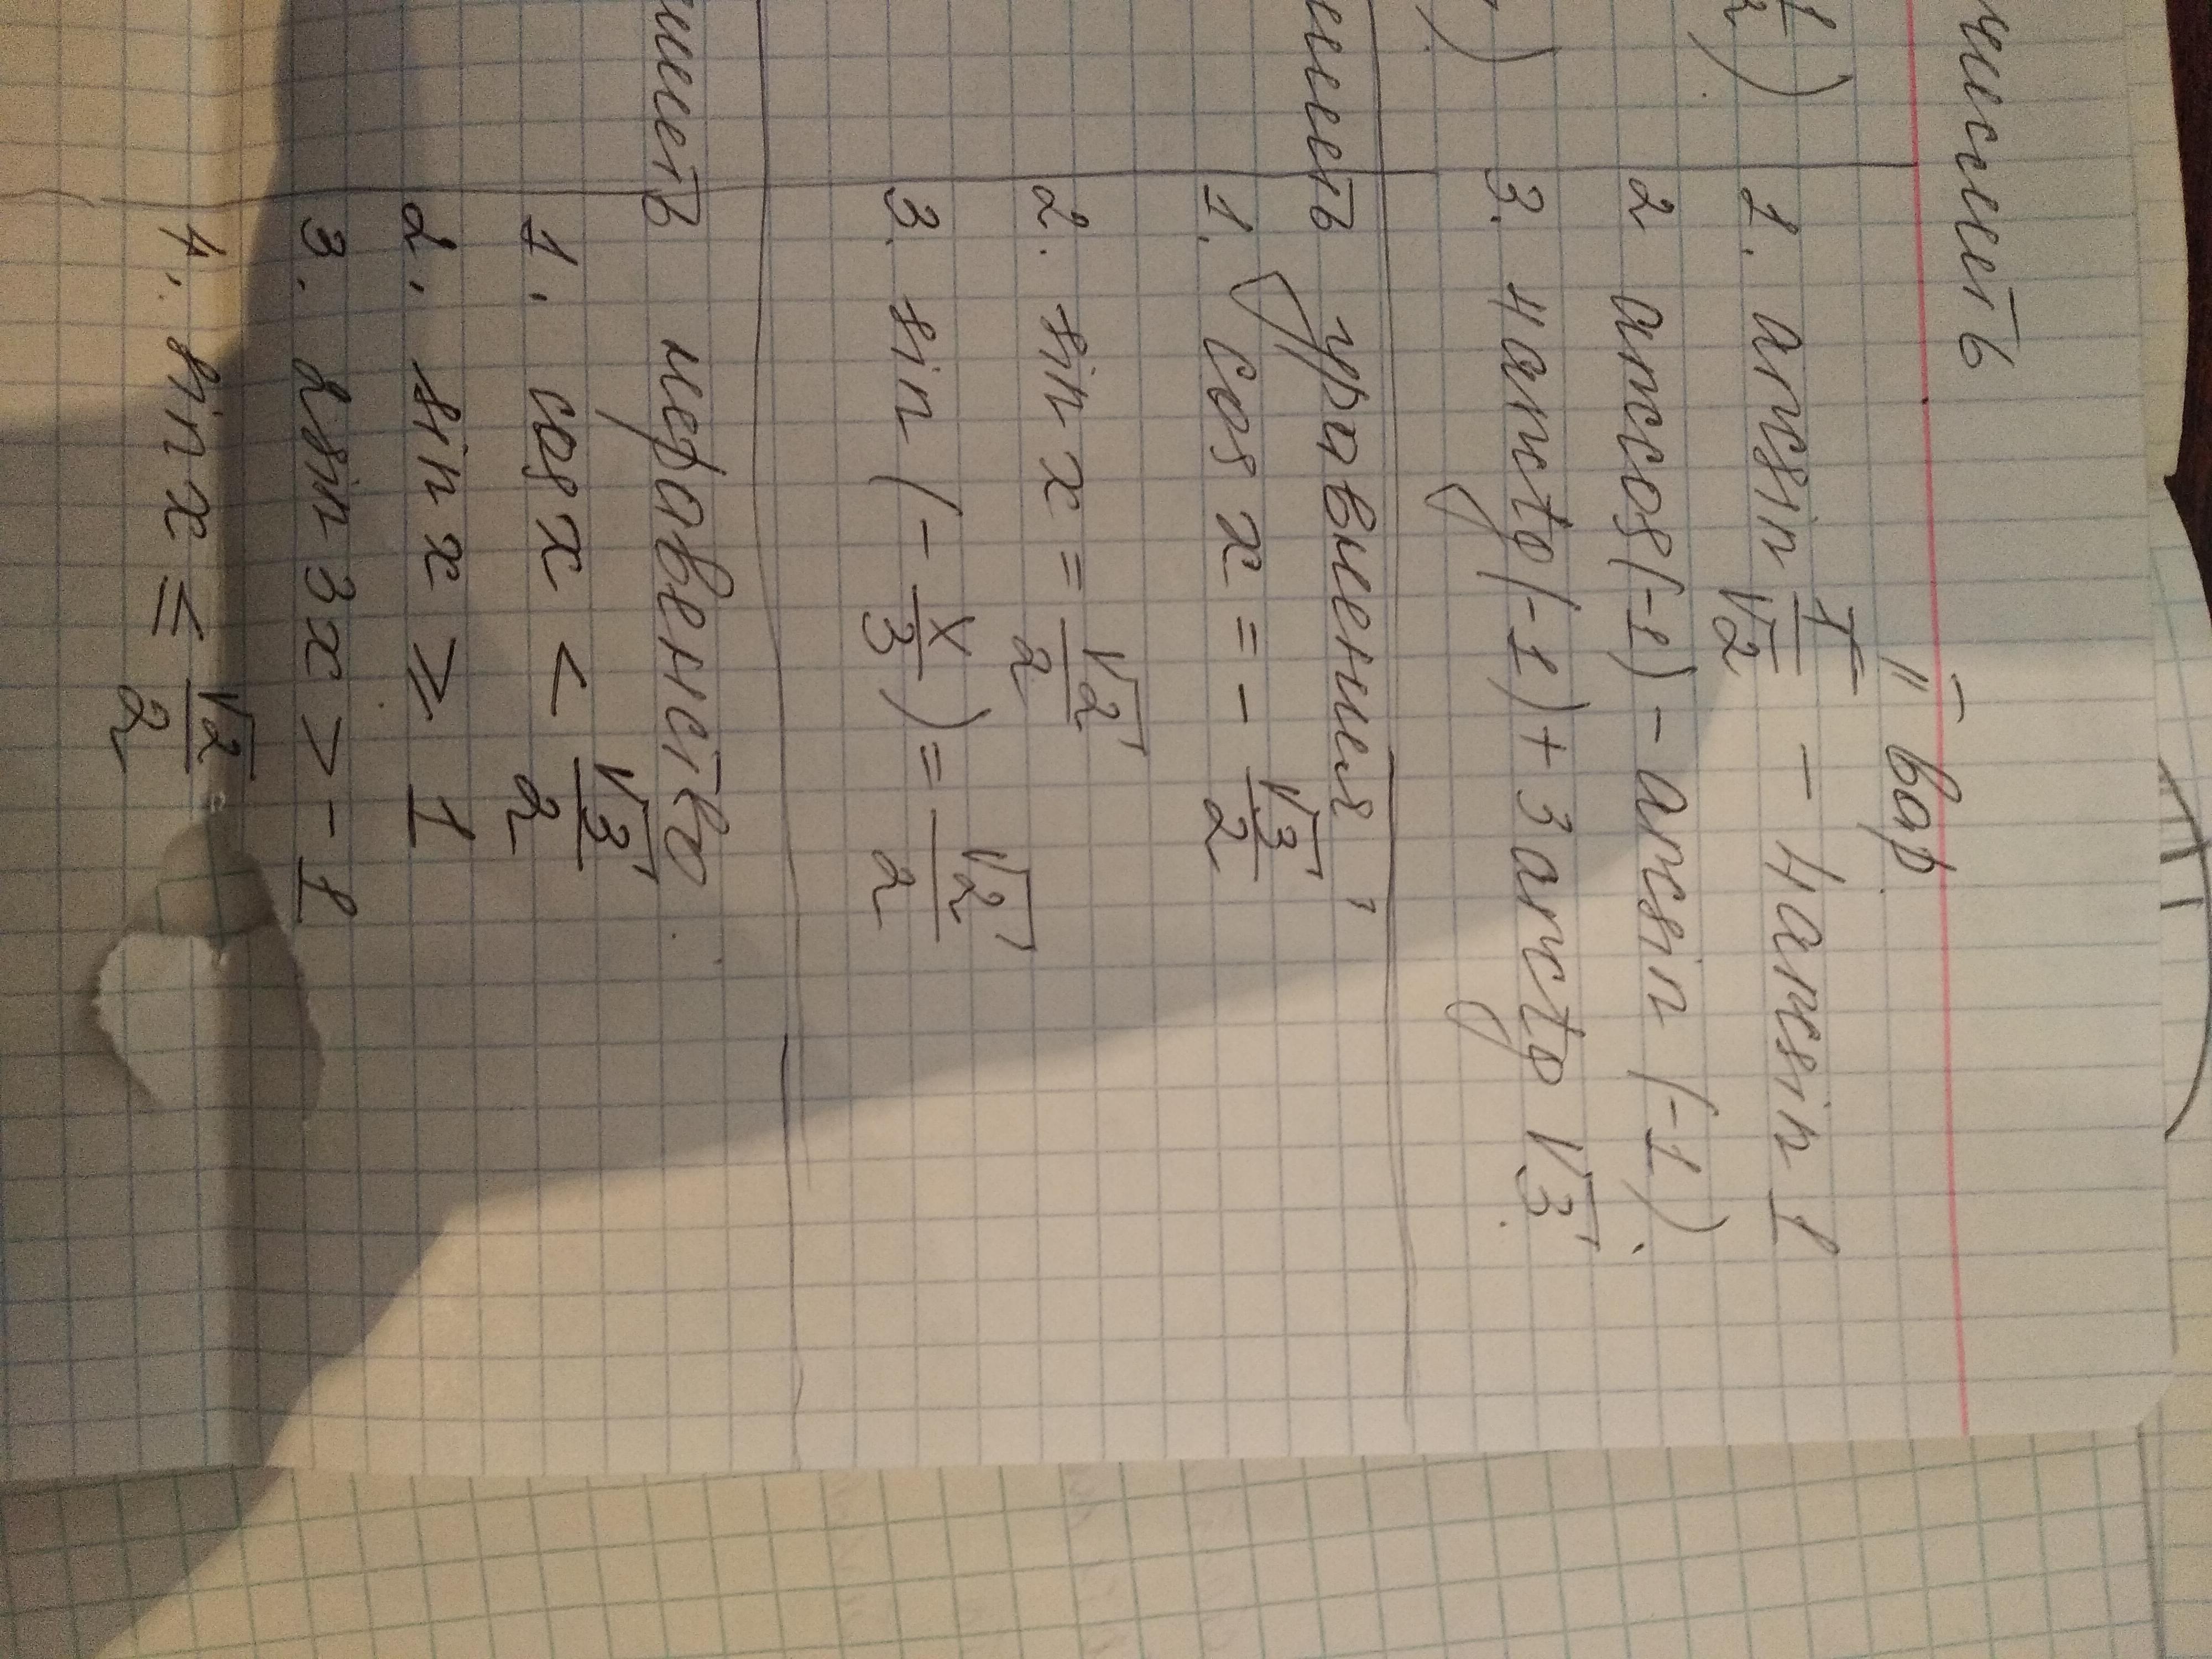 II вар
1. arcsin 1/√2 - 4arcsin 1
2. arccos(-1) - arcsin (-1).
3. 4arctg(-1) + 3arctg √3.
уравнения
1. cos x = - √3/2
2. sin x = √2/2
3. sin (- x/3) = √2/2
неравенство
1. cos x < √3/2
2. sin x ⩾ 1
3. 2sin 3x > -1
4. sin x ≤ √2/2